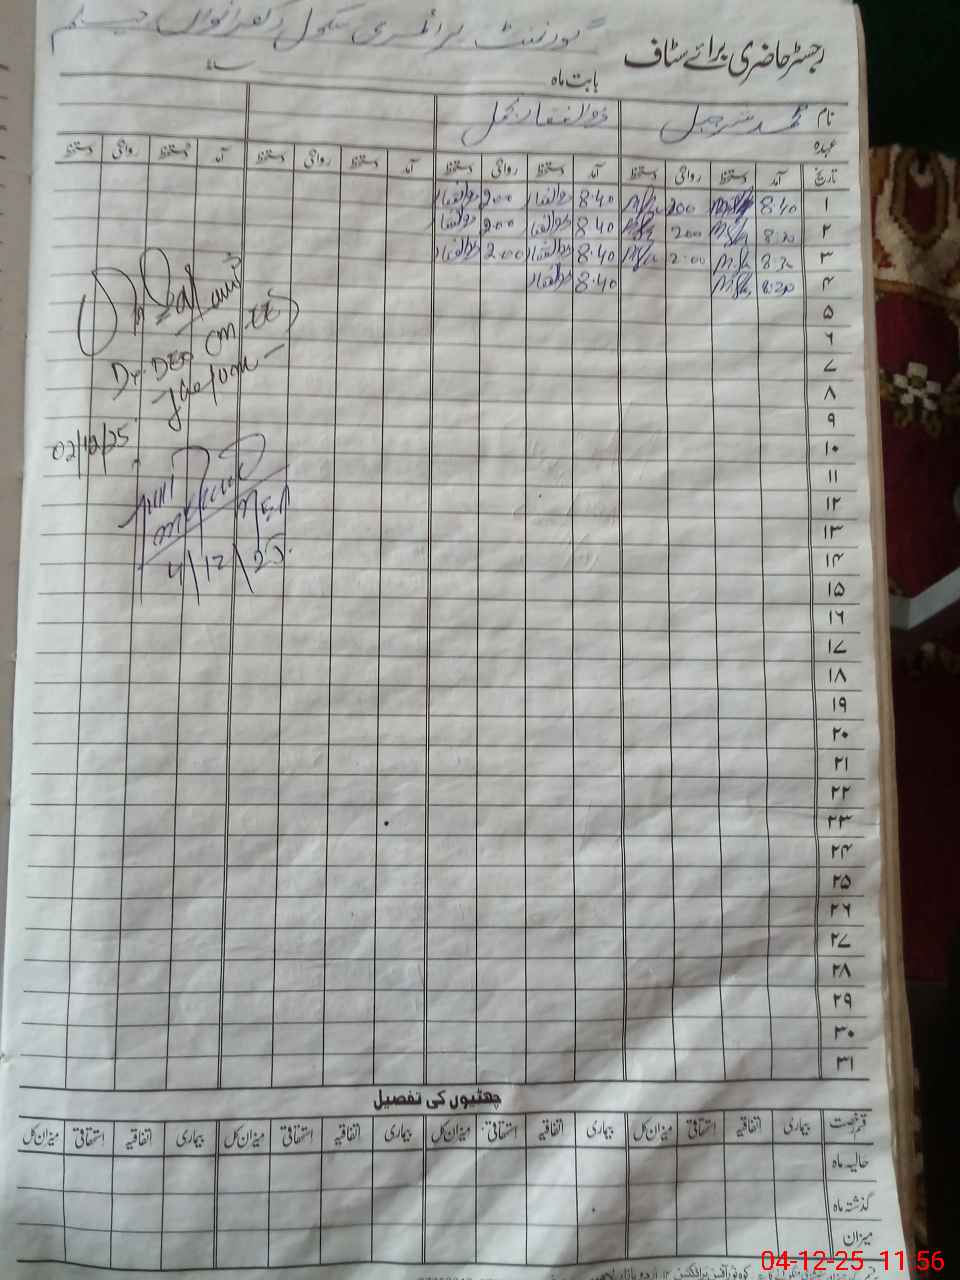 گورنمنٹ پرائمری سکول
رجسٹر حاضری برائے سٹاف
بابت ماہ
نام محمد شرجیل ذوالفقار
عہدہ
تاریخ آمد دستخط روانگی دستخط آمد دستخط روانگی دستخط آمد دستخط روانگی دستخط آمد دستخط روانگی دستخط
۱ 8:40 200 8:40 ذوالفقار 2:00 ذوالفقار
۲ 8:20 200 8:40 ذوالفقار 2:00 ذوالفقار
۳ 8:20 2:00 8:40 ذوالفقار 2:00 ذوالفقار
۴ 8:20 8:40 ذوالفقار
۵
۶
۷
۸
۹
۱۰
۱۱
۱۲
۱۳
۱۴
۱۵
۱۶
۱۷
۱۸
۱۹
۲۰
۲۱
۲۲
۲۳
۲۴
۲۵
۲۶
۲۷
۲۸
۲۹
۳۰
۳۱
Dy. DEO
02/12/25
MEA
4/12/25
چھٹیوں کی تفصیل
قسم رخصت بیماری اتفاقیہ استحقاقی میزان کل بیماری اتفاقیہ استحقاقی میزان کل بیماری اتفاقیہ استحقاقی میزان کل بیماری اتفاقیہ استحقاقی میزان کل
حالیہ ماہ
گذشتہ ماہ
میزان
04-12-25 11:56